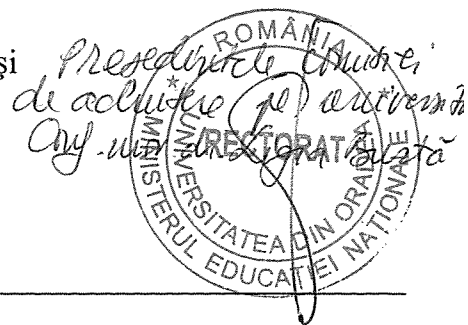 și Președintele Comisiei
de admitere pe universitate
Conf. univ. dr. Ligia Burtă
ROMÂNIA
* MINISTERUL EDUCAȚIEI NAȚIONALE *
UNIVERSITATEA DIN ORADEA
RECTORAT